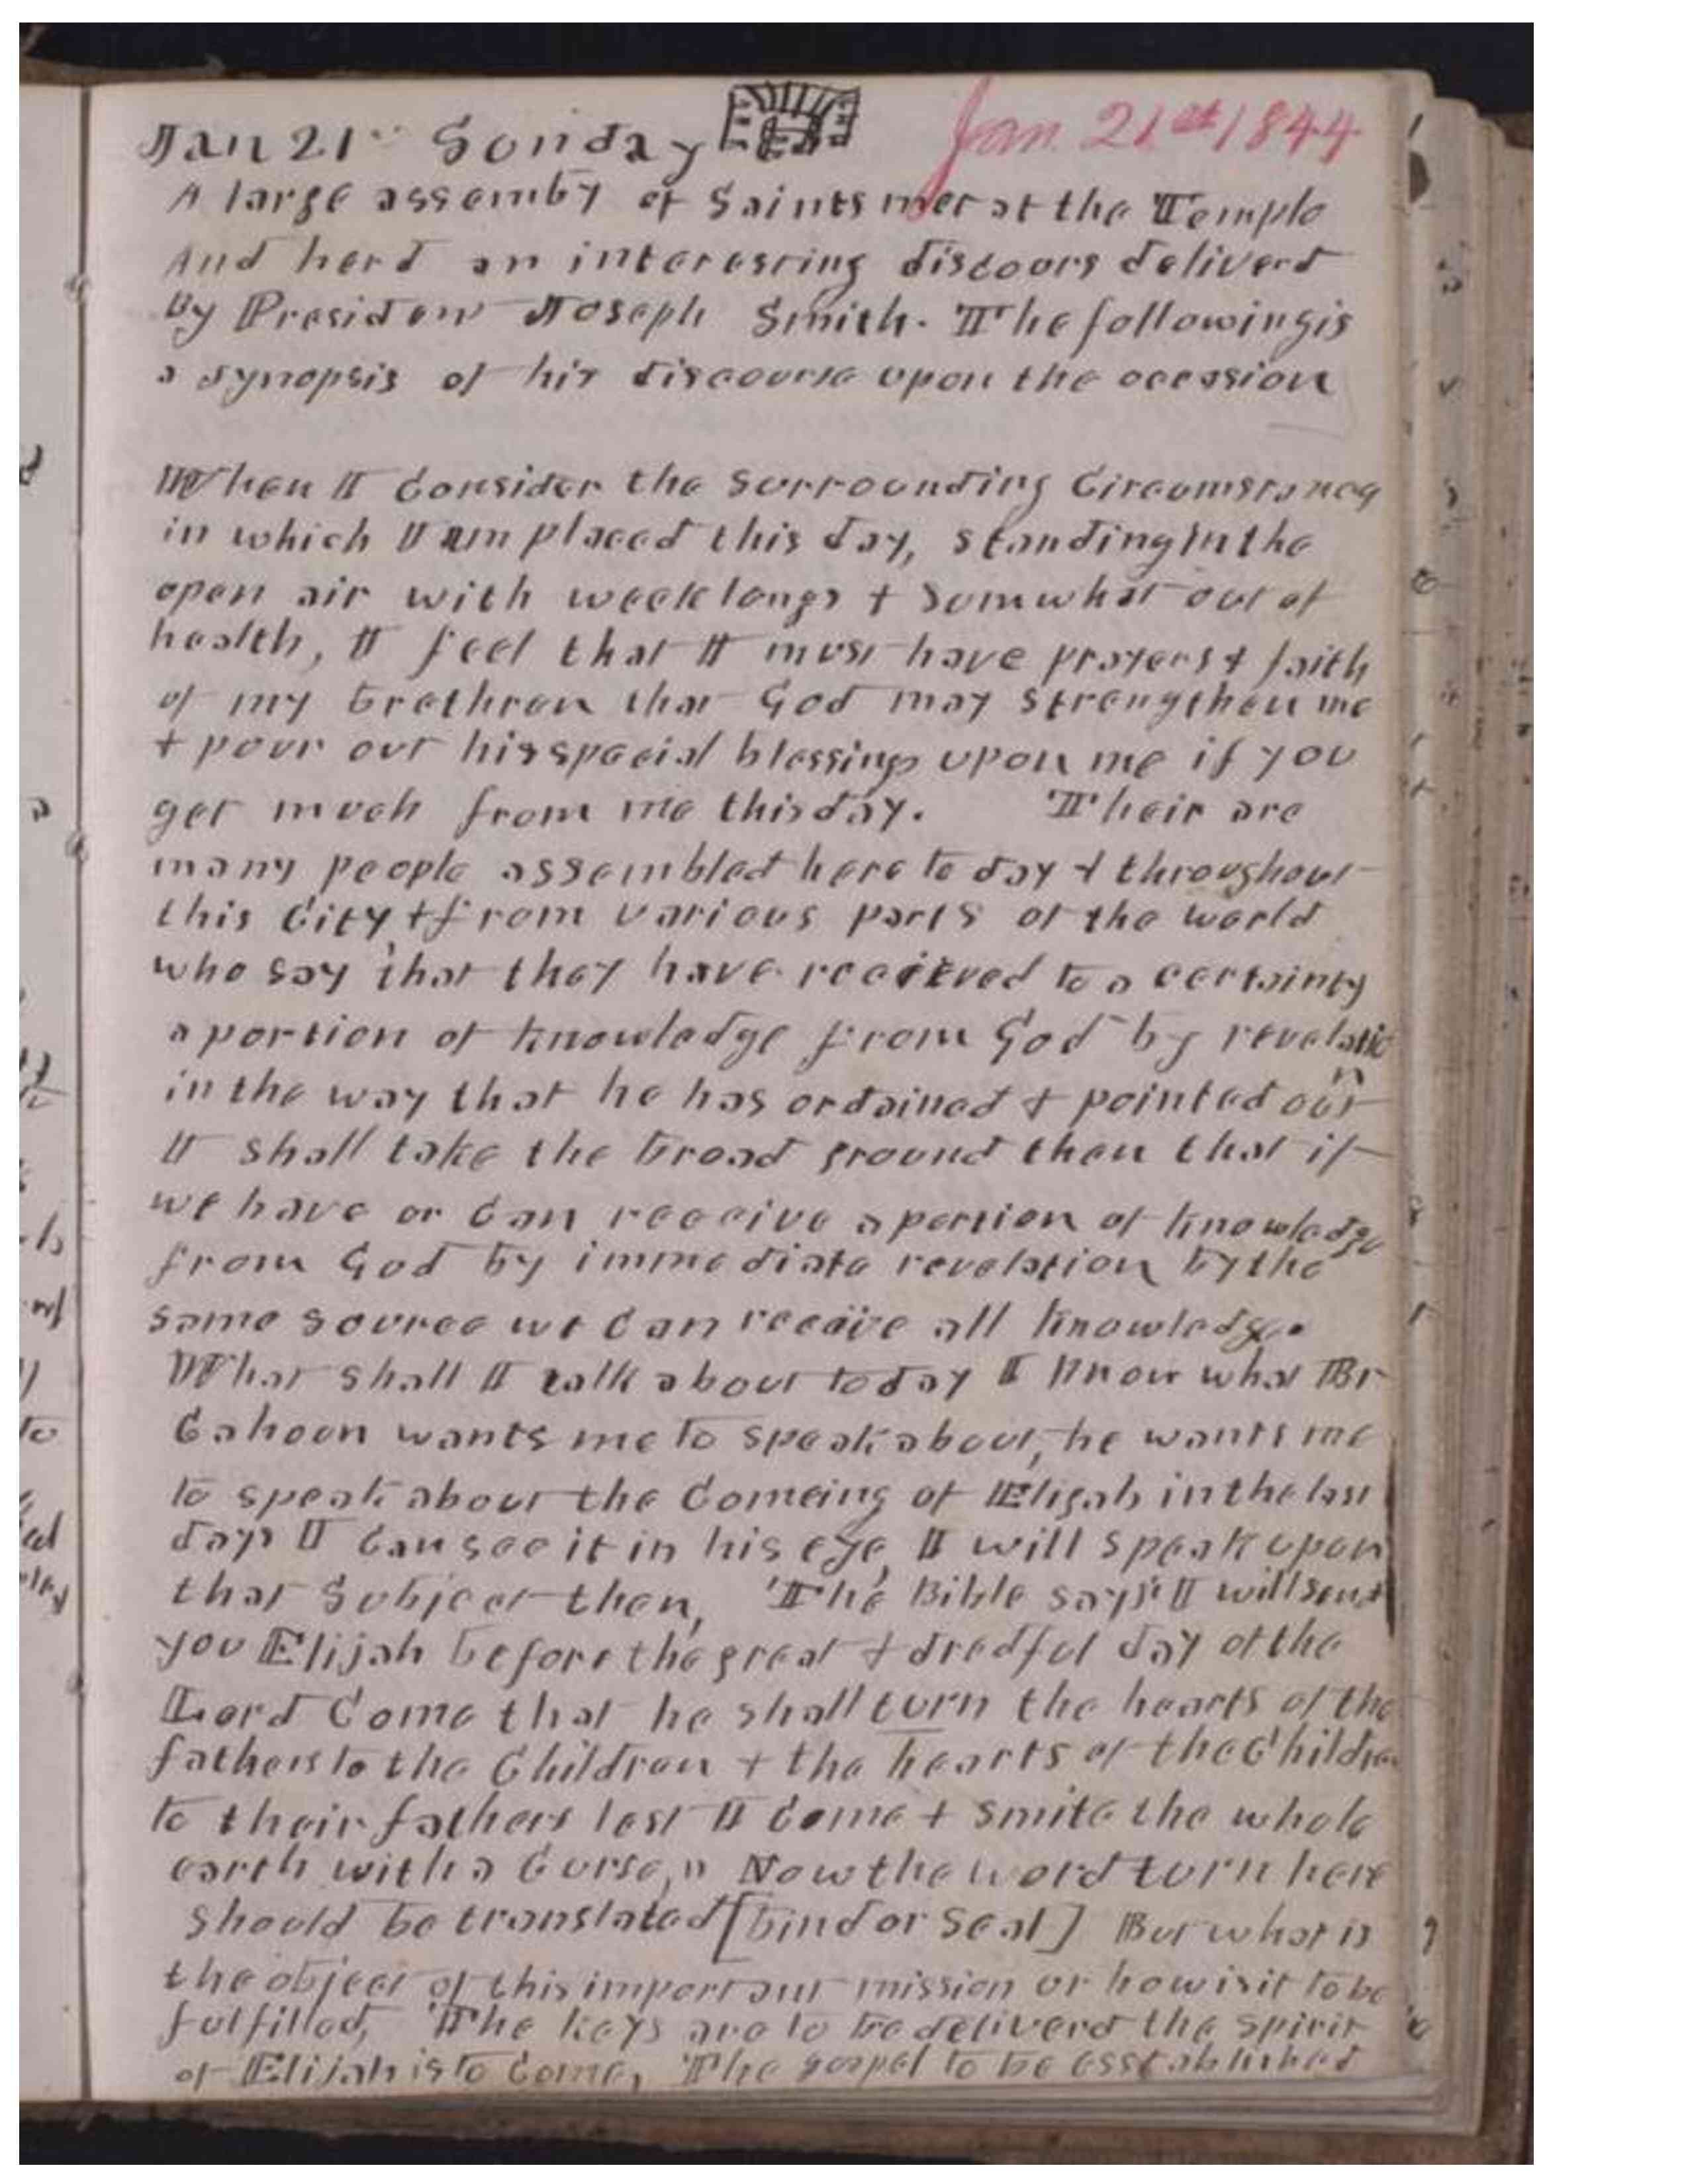 Jan 21st Sunday Jan. 21st 1844
A large assemby of Saints met at the Temple
And herd an interesting discours deliverd
By President Joseph Smith. The following is
a synopsis of his discourse upon the occasion
When I Consider the Surrounding Circumstances
in which I am placed this day, standing in the
open air with week lungs & Somwhat out of
health, I feel that I must have prayers & faith
of my brethren that God may strengthen me
& pour out his special blessings upon me if you
get much from me this day. Their are
many people assembled here to day & throughout
this City, & from various parts of the world
who say that they have recieved to a certainty
a portion of knowledge from God by revelation
in the way that he has ordained & pointed out
I shall take the broad ground then that if
we have or Can receive a portion of knowledge
from God by immediate revelation by the
same source we Can receive all knowledge.
What shall I talk about to day I Know what Br
Cahoon wants me to speak about, he wants me
to speak about the Comeing of Eligah in the last
days I Can see it in his eye, I will speak upon
that Subject then, The Bible says "I will send
you Elijah before the great & dredful day of the
Lord Come that he shall turn the hearts of the
fathers to the Children & the hearts of the Children
to their fathers lest I Come & smite the whole
earth with a Curse," Now the word turn here
should be translated [bind or seal] But what is
the object of this important mission or how is it to be
fulfilled, The keys are to be deliverd the spirit
of Elijah is to Come, The gospel to be esstablished